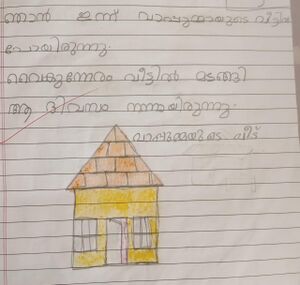 ഞാൻ ഇന്ന് വാപ്പുമ്മായുടെ വീട്ടിൽ
പോയിരുന്നു.
വൈകുന്നേരം വീട്ടിൽ മടങ്ങി
ആ ദിവസം നന്നായിരുന്നു.
വാപ്പുമ്മയുടെ വീട്